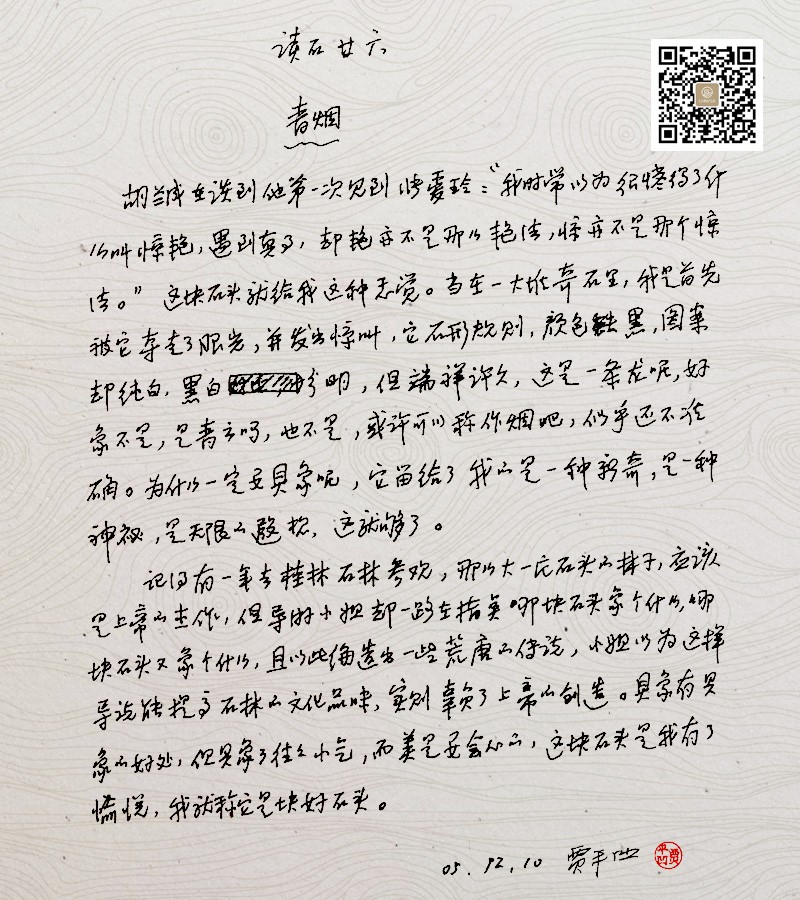 读石廿六
青烟
胡兰成在谈到他第一次见到张爱玲："我时常以为很懂得了什
么叫惊艳，遇到真了，却艳亦不是那么艳法，惊亦不是那个惊
法。"这块石头就给我这种感觉。当在一大堆奇石里，我是首先
被它夺走了眼光，并发出惊叫，它石形规则，颜色黝黑，图案
却纯白，黑白分明，但端详许久，这是一条龙呢，好
象不是，是青云吗，也不是，或许可以称作烟吧，似乎还不准
确。为什么一定要具象呢，它留给了我的是一种新奇，是一种
神秘，是无限的遐想，这就够了。
记得有一年去桂林石林参观，那么大一片石头的林子，应该
是上帝的杰作，但导游小姐却一路在指点哪块石头象个什么，哪
块石头又象个什么，且以此编造出一些荒唐的传说，小姐以为这样
导说能提高石林的文化品味，实则辜负了上帝的创造。具象有具
象的好处，但具象了往往小气，而美是要会心的，这块石头是我有了
恍惚，我就称它是块好石头。
05.12.10 贾平凹